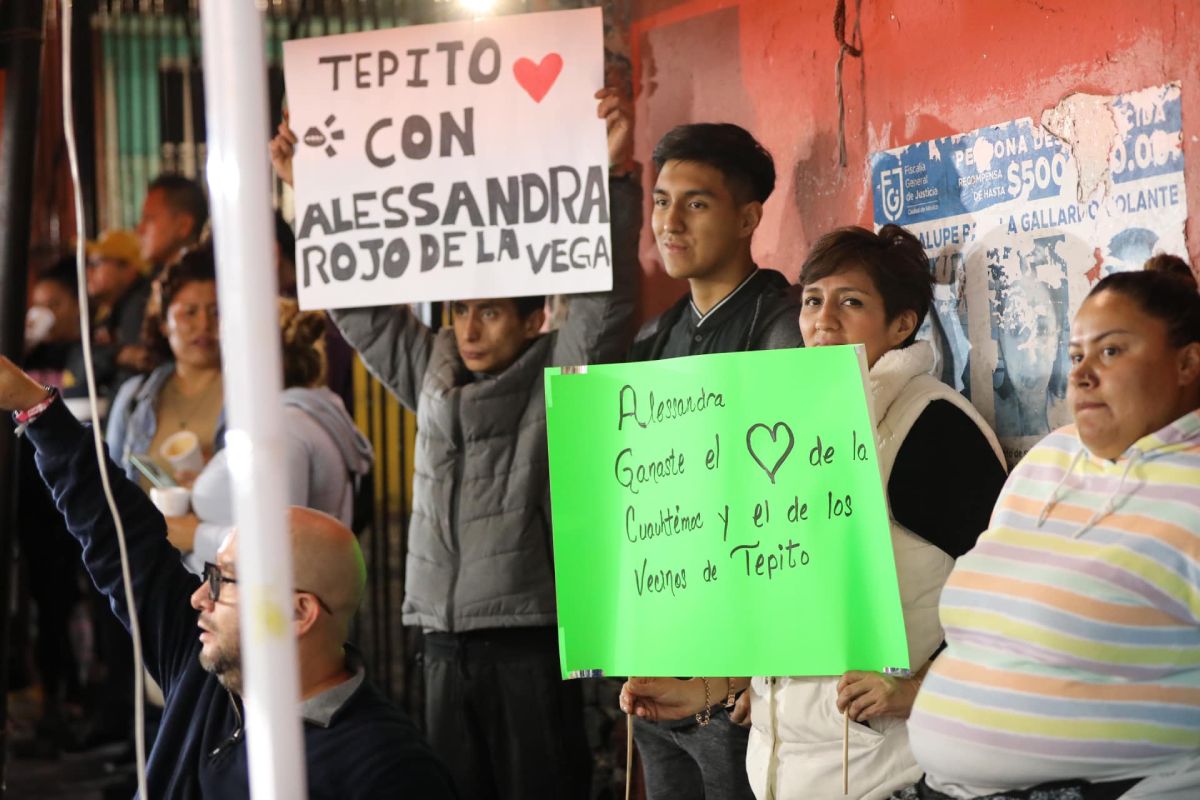 TEPITO
CON
ALESSANDRA
ROJO DE LA VEGA
Alessandra
Ganaste el de la
Cuauhtémoc y el de los
Vecinos de Tepito
Fiscalía
General
de Justicia
Ciudad de México
PERSONA
RECOMPENSA
DE HASTA
$500
00.
LA GALLARDO
VOLANTE